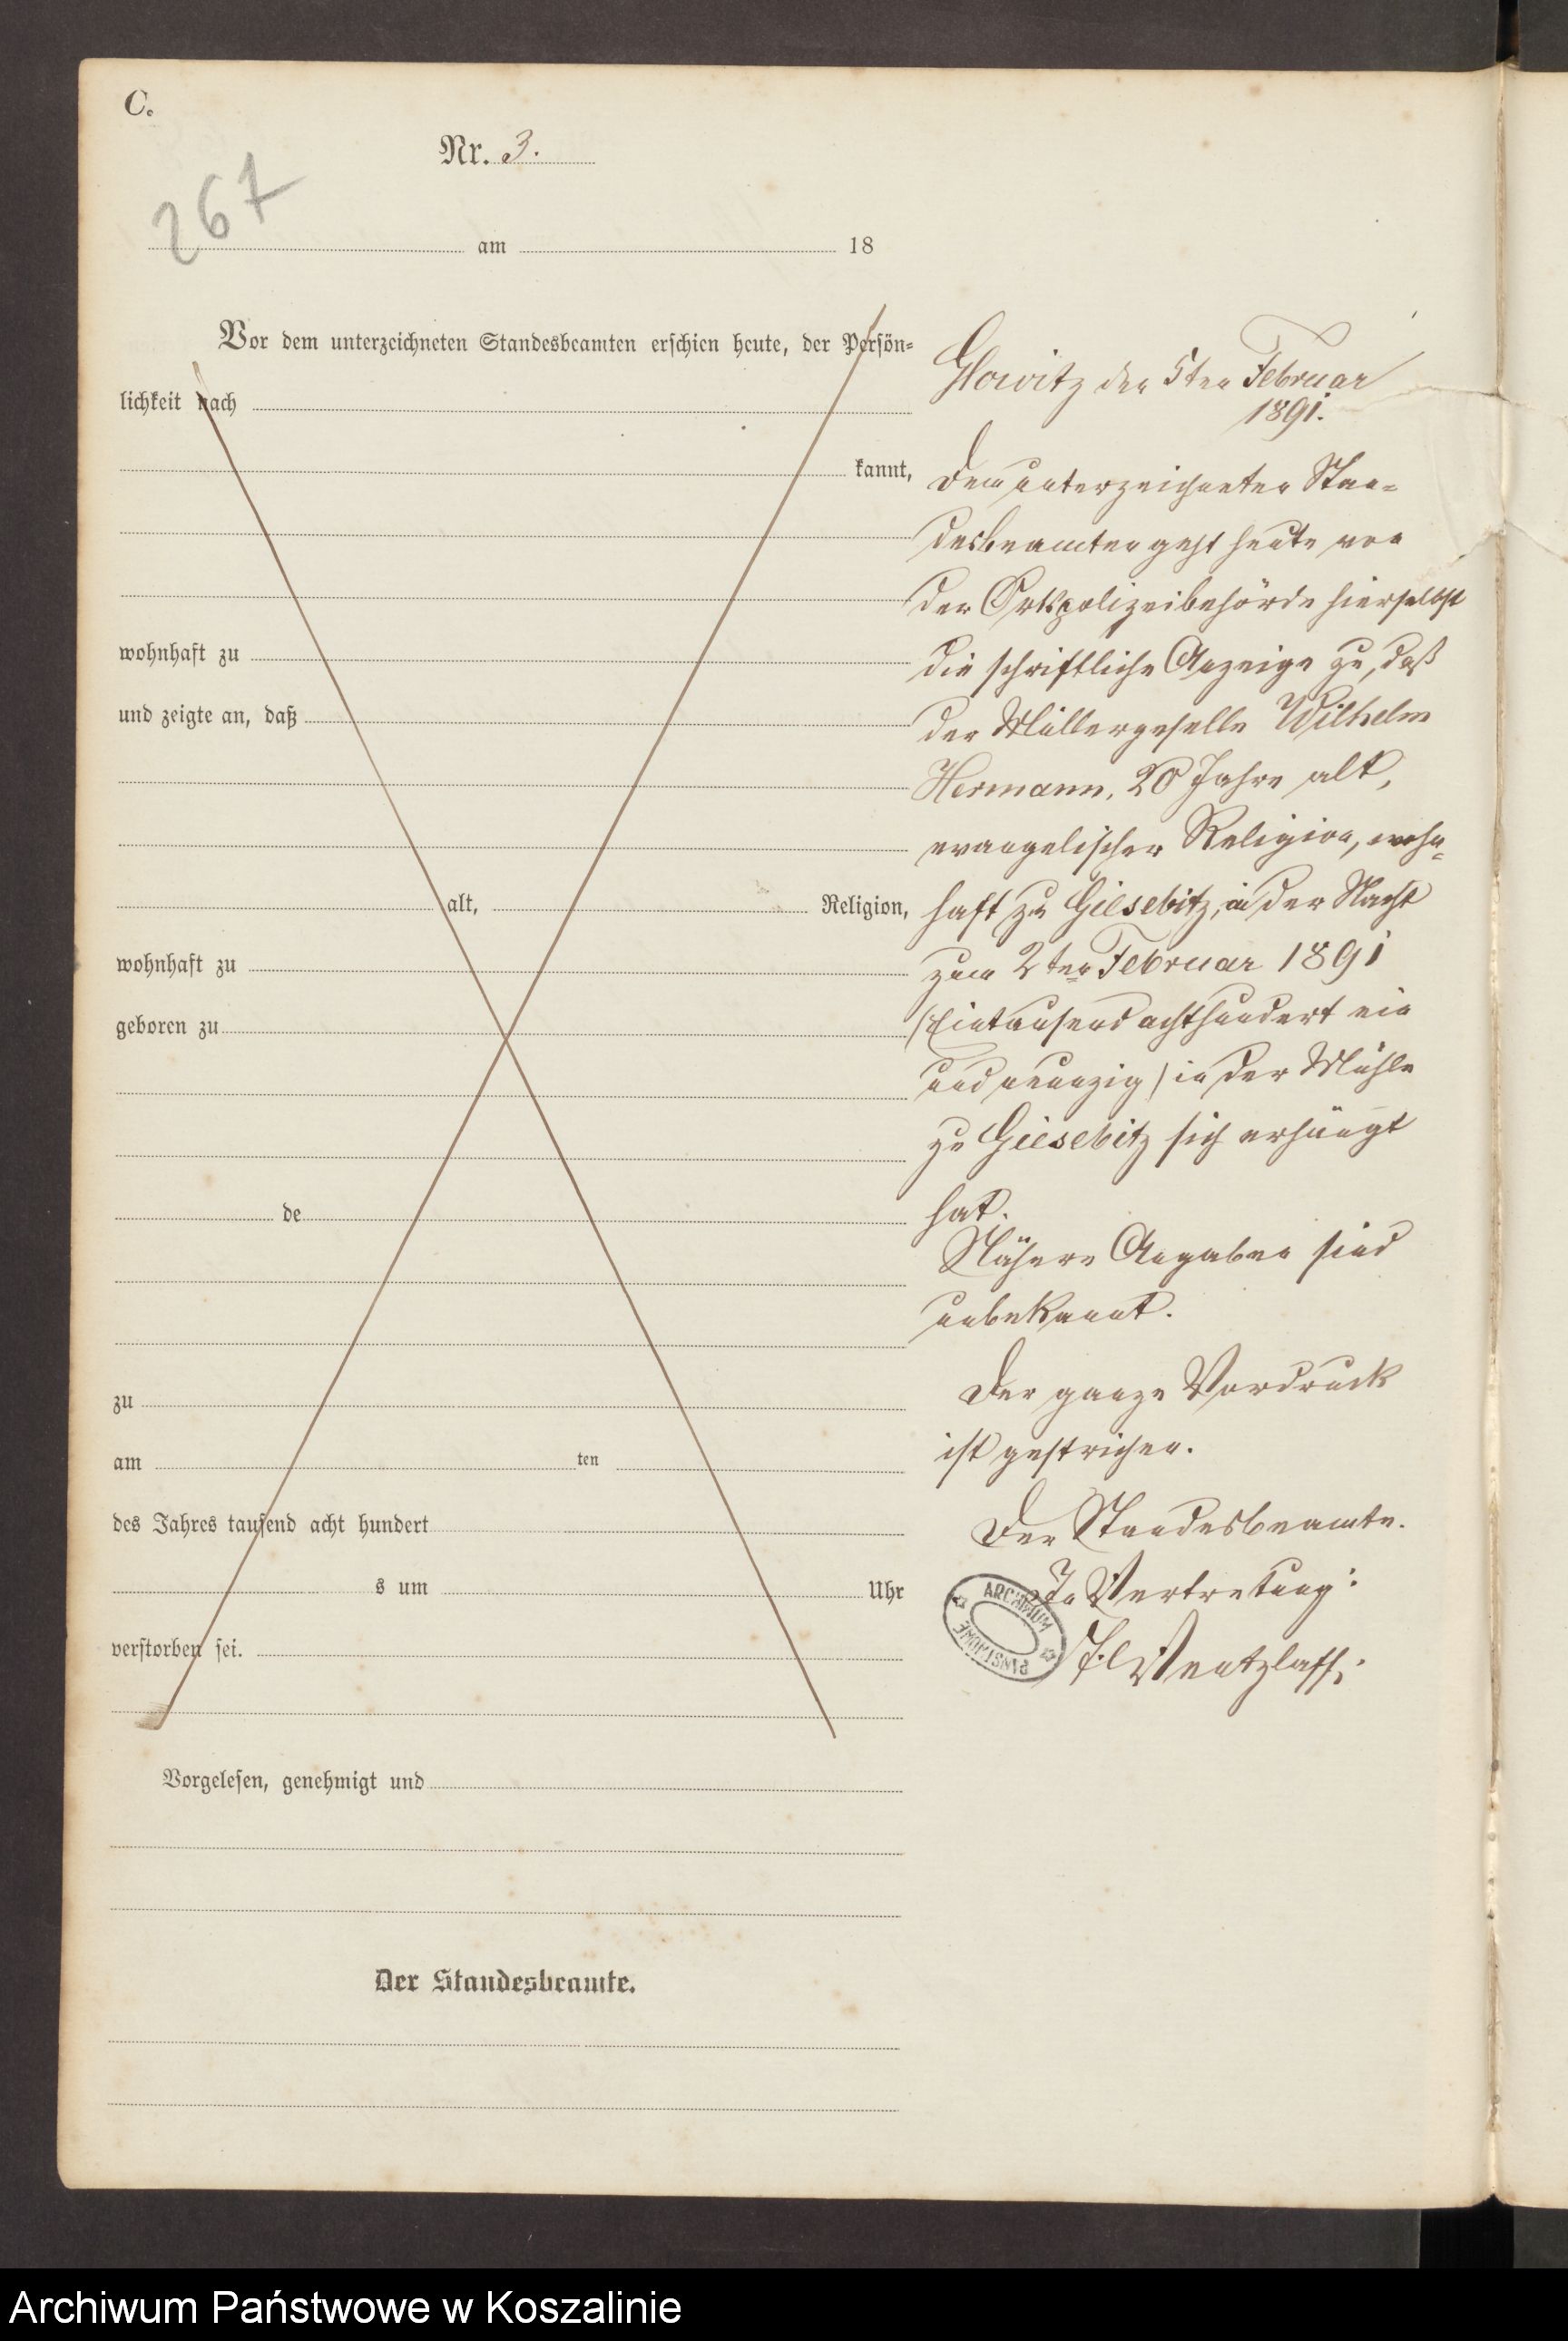 C.
Nr. 3.
267
am 18
Vor dem unterzeichneten Standesbeamten erschien heute, der Persön=
lichkeit nach
kannt,
wohnhaft zu
und zeigte an, daß
alt, Religion,
wohnhaft zu
geboren zu
de
zu
am ten
des Jahres tausend acht hundert
s um Uhr
verstorben sei.
Vorgelesen, genehmigt und
Der Standesbeamte.
Glowitz den 5ten Februar
1891.
Dem unterzeichneten Stan=
desbeamten geht heute von
der Ortspolizeibehörde hierselbst
die schriftliche Anzeige zu, daß
der Müllergeselle Wilhelm
Hermann, 20 Jahre alt,
evangelischer Religion, wohn=
haft zu Giesebitz, in der Nacht
zum 2ten Februar 1891
(Eintausend achthundert ein
und neunzig) in der Mühle
zu Giesebitz sich erhängt
hat.
Nähere Angaben sind
unbekannt.
Der ganze Vordruck
ist gestrichen.
Der Standesbeamte.
In Vertretung:
Wentzlaff.
ARCHIWUM
PAŃSTWOWE
Archiwum Państwowe w Koszalinie